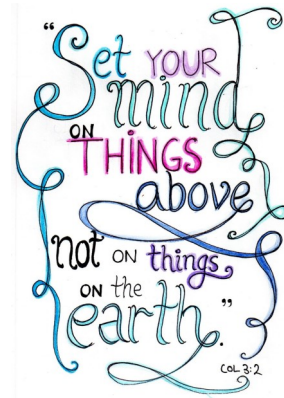 “Set YOUR
mind
ON
THINGS
above
not ON things
ON the
earth.”
COL 3:2